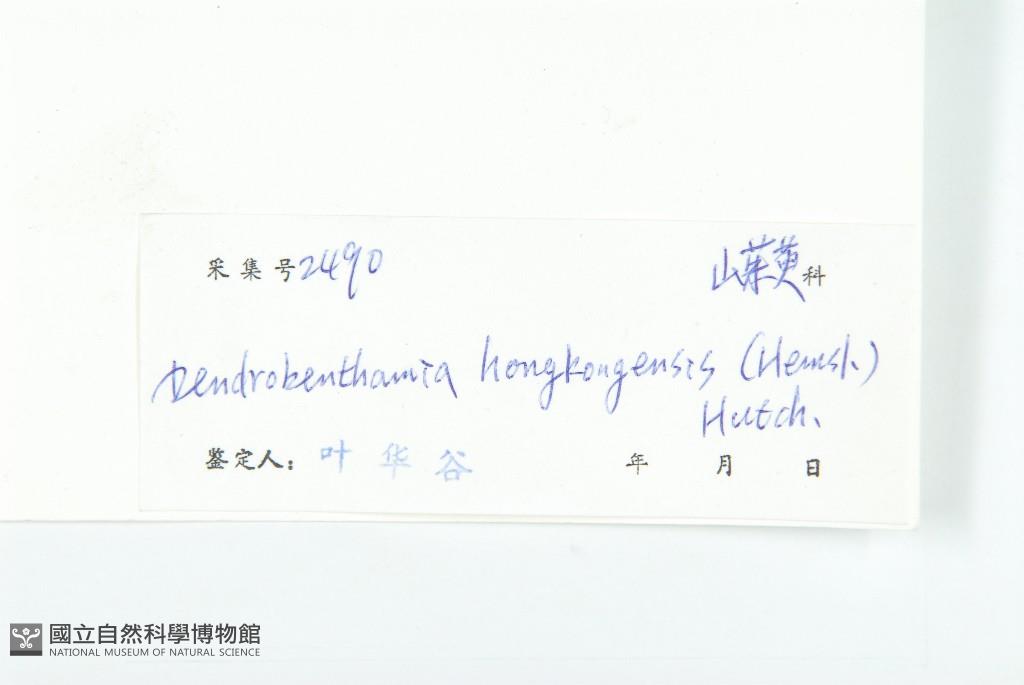 采集号2490 山茱萸科
Dendrobenthamia hongkongensis (Hemsl.)
Hutch.
鉴定人: 叶华谷 年 月 日
國立自然科學博物館
NATIONAL MUSEUM OF NATURAL SCIENCE